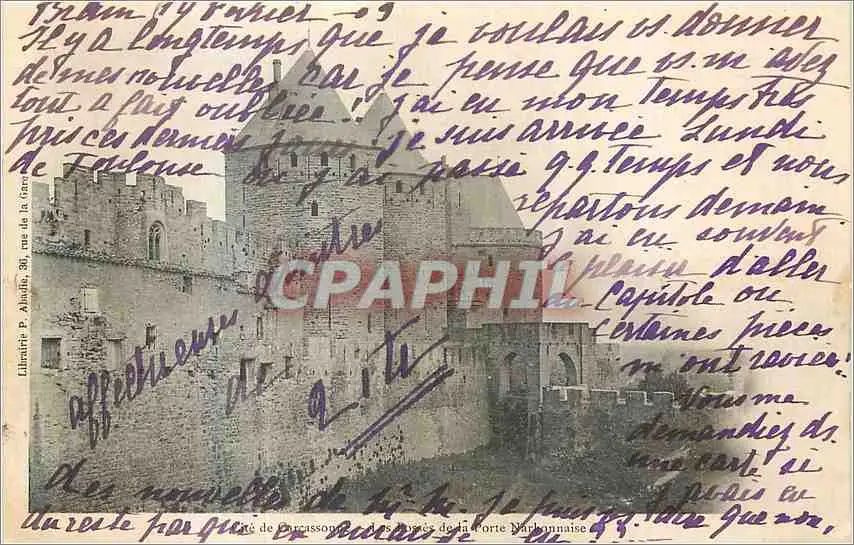 Bram 19 Février 09
Il y a longtemps que je voulais vs. donner
de mes nouvelles car je pense que vs. m'avez
tout a fait oubliée! j'ai eu mon temps très
pris ces derniers jours. je suis arrivée Lundi
de Toulouse où j'ai passé q.q. temps et nous
repartons demain
j'ai eu souvent
le plaisir d'aller
au Capitole ou
certaines pièces
m'ont ravies!
Vous me
demandiez ds.
une carte si
j'avais eu
des nouvelles de je puis vs. dire que non,
du reste
affectueuses d'autres
de
CPAPHIL
Librairie P. Abadie, 36, rue de la Gare
Cité de Carcassonne - Les Fossés de la Porte Narbonnaise